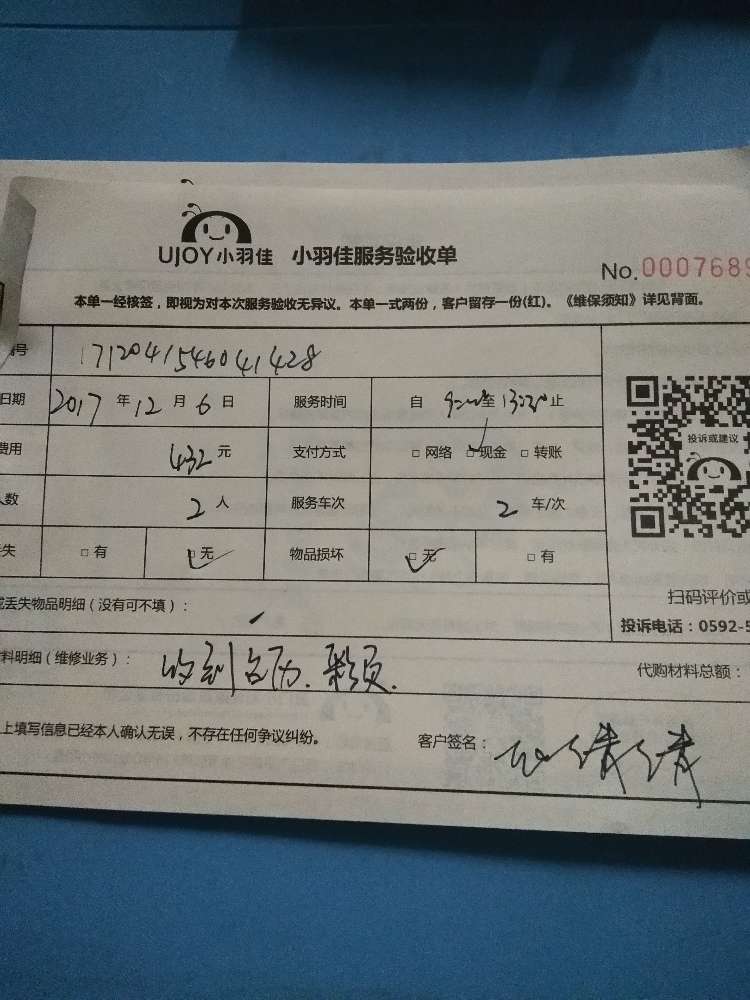 UJOY小羽佳 小羽佳服务验收单
No.0007689
本单一经核签，即视为对本次服务验收无异议。本单一式两份，客户留存一份(红)。《维保须知》详见背面。
号 1712041546041428
日期 2017 年 12 月 6 日 服务时间 自 9:00至 13:30止
费用 432 元 支付方式 □ 网络 □ 现金 □ 转账
人数 2 人 服务车次 2 车/次
投诉或建议
失 □ 有 □ 无 物品损坏 □ 无 □ 有
扫码评价或
丢失物品明细（没有可不填）：
投诉电话：0592-5
料明细（维修业务）： 收到
代购材料总额：
上填写信息已经本人确认无误，不存在任何争议纠纷。 客户签名： 倩倩